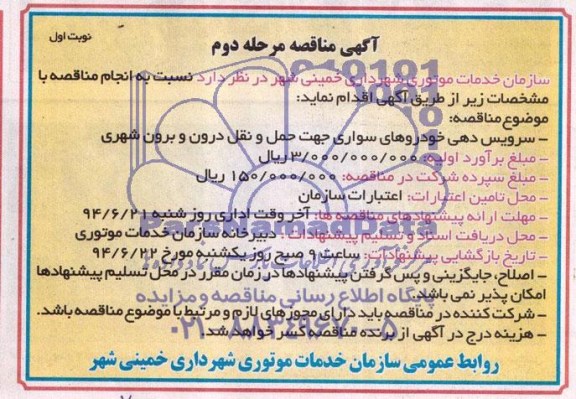 نوبت اول
آگهی مناقصه مرحله دوم
سازمان خدمات موتوری شهرداری خمینی شهر در نظر دارد نسبت به انجام مناقصه با
مشخصات زیر از طریق آگهی اقدام نماید:
موضوع مناقصه:
– سرویس دهی خودروهای سواری جهت حمل و نقل درون و برون شهری
– مبلغ برآورد اولیه: ۳/۰۰۰/۰۰۰/۰۰۰ ریال
– مبلغ سپرده شرکت در مناقصه: ۱۵۰/۰۰۰/۰۰۰ ریال
– محل تامین اعتبارات: اعتبارات سازمان
– مهلت ارائه پیشنهادهای مناقصه ها: آخر وقت اداری روز شنبه ۹۴/۶/۲۱
– محل دریافت اسناد و تسلیم پیشنهادات: دبیرخانه سازمان خدمات موتوری
– تاریخ بازگشایی پیشنهادات: ساعت ۹ صبح روز یکشنبه مورخ ۹۴/۶/۲۲
– اصلاح، جایگزینی و پس گرفتن پیشنهادها در زمان مقرر در محل تسلیم پیشنهادها
امکان پذیر نمی باشد.
– شرکت کننده در مناقصه باید دارای مجوزهای لازم و مرتبط با موضوع مناقصه باشد.
– هزینه درج در آگهی از برنده مناقصه کسر خواهد شد.
روابط عمومی سازمان خدمات موتوری شهرداری خمینی شهر
ParsNamadData
پایگاه اطلاع رسانی مناقصه و مزایده
۰۲۱-۸۸۳۴۹۶۷۰-۵